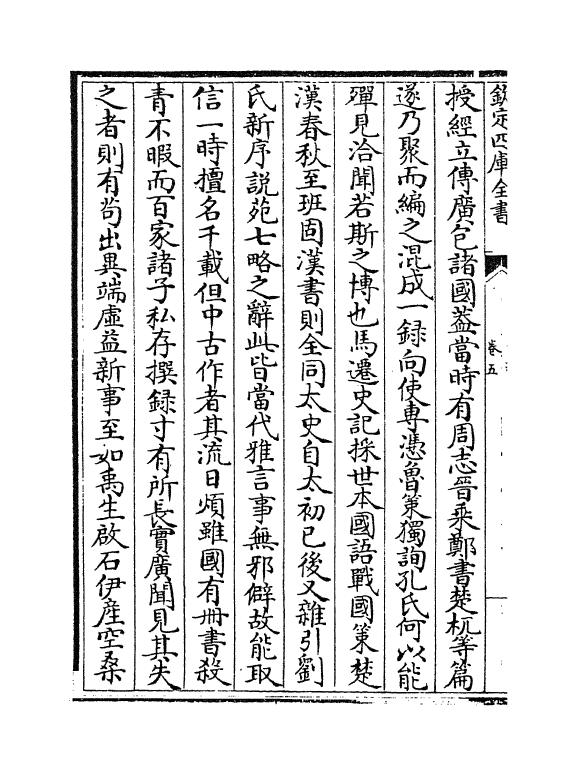 欽定四庫全書
卷五
授經立傳廣包諸國葢當時有周志晉乘鄭書楚杌等篇
遂乃聚而編之混成一録向使專憑魯策獨詢孔氏何以能
殫見洽聞若斯之博也馬遷史記採世本國語戰國策楚
漢春秋至班固漢書則全同太史自太初已後又雜引劉
氏新序説苑七略之辭此皆當代雅言事無邪僻故能取
信一時擅名千載但中古作者其流日煩雖國有冊書殺
青不暇而百家諸子私存撰録寸有所長實廣聞見其失
之者則有茍出異端虛益新事至如禹生啟石伊産空桑